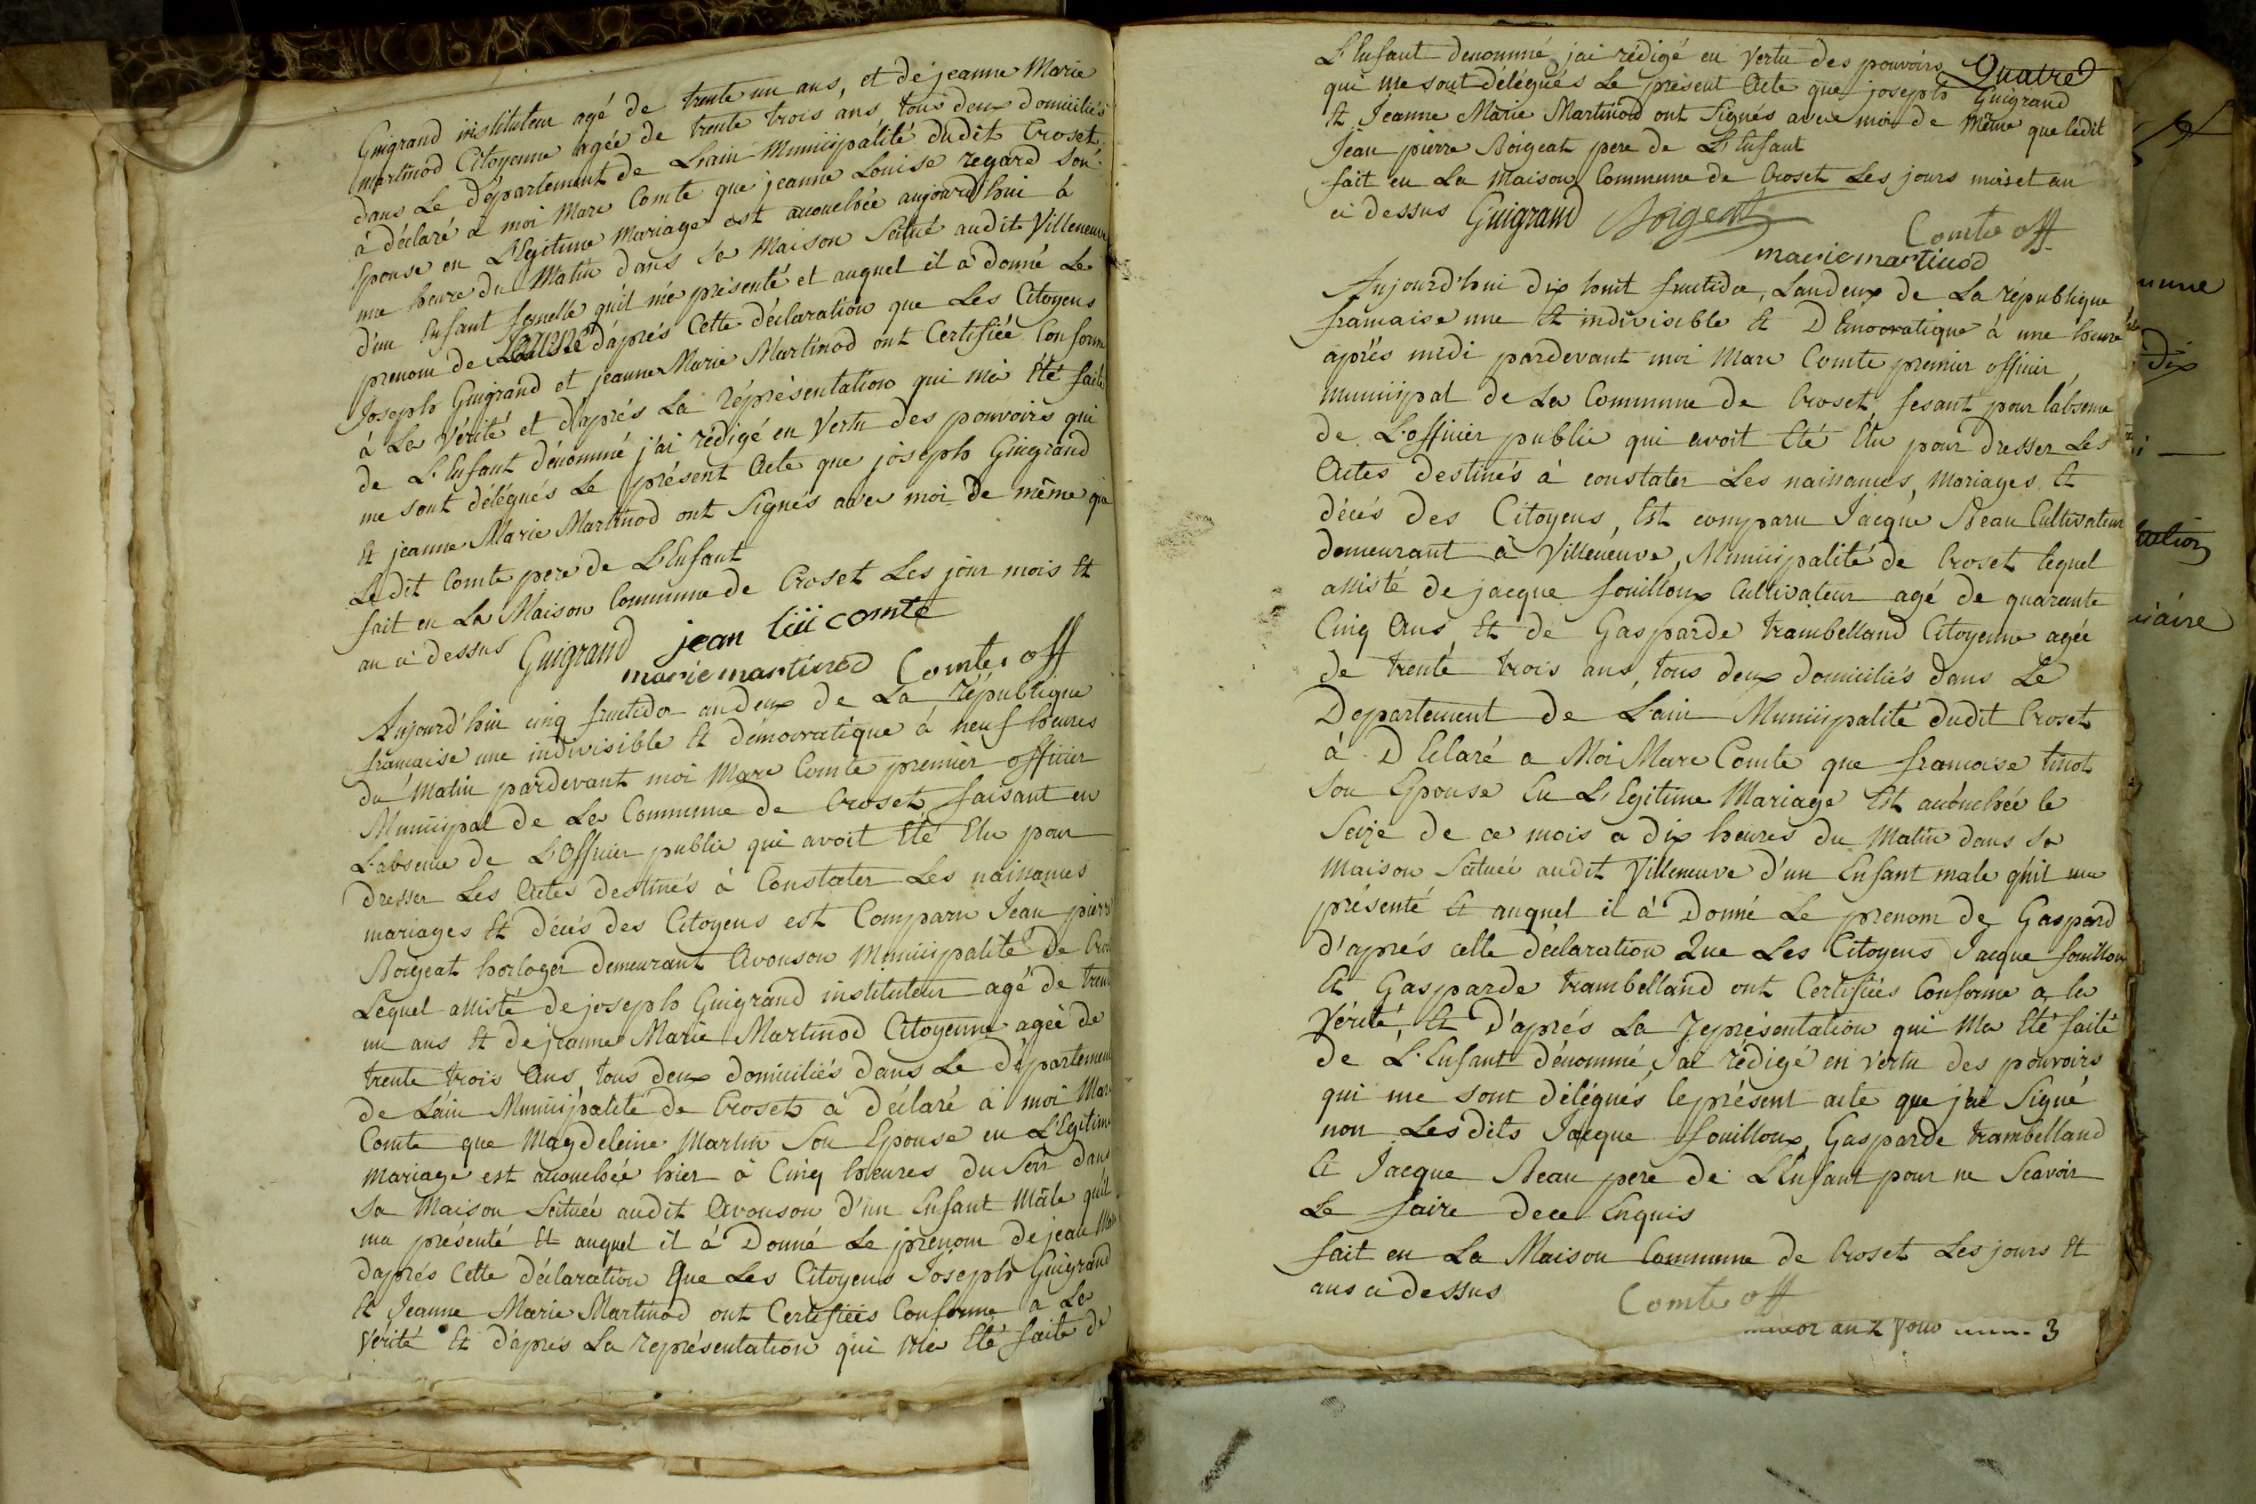 Guigrand instituteur agé de trente un ans, et de jeanne Marie
martinod Citoyenne agée de trente trois ans, tous deux domiciliés
dans Le département de Lain Municipalité dudit Croset
à déclaré a moi Marc Comte que jeanne Louise regard son
Epouse en L'Egitime Mariage est accouchée aujourdhui à
une heure du Matin dans sa Maison Scitué audit Villeneuve
d'un Enfant femelle quil m'a présenté et auquel il a donné Le
prenom de d'après Cette déclaration que Les Citoyens
Joseph Guigrand et jeanne Marie Martinod ont Certifiée Conforme
à La Vérité et d'après La réprésentation qui m'a Eté faite
de L'Enfant dénommé j'ai rédigé en Vertu des pouvoirs qui
me sont délégués Le présent Acte que joseph Guigrand
Et jeanne Marie Martinod ont Signés avec moi De même que
Le dit Comte pere de L'Enfant
fait en La Maison Commune de Croset Les jour mois Et
an ci dessus Guigrand jean comte
marie martinod Comte off
Aujourd'hui cinq fructidor an deux de La république
francaise une indivisible Et démocratique à neuf heures
du Matin pardevant moi Marc Comte premier officier
Municipal de La Commune de Croset faisant en
L'absence de L'Officier public qui avoit Eté Elu pour
dresser Les Actes destinés à Constater Les naissances
mariages Et décés des Citoyens est Comparu Jean pierre
Roigeat horloger demeurant Avouson Municipalité de
Lequel assisté de joseph Guigrand instituteur agé de trente
un ans Et de jeanne Marie Martinod Citoyenne agée de
trente trois Ans, tous deux domiciliés dans Le département
de Lain Municipalité de Croset à déclaré à moi Marc
Comte que Magdeleine Martin Son Epouse en L'Egitime
Mariage est accouchée hier à Cinq heures du Soir dans
Sa Maison Scituée audit Avouson d'un Enfant Mâle quil
ma présenté Et auquel il à Donné Le prenom de jean
daprés Cette déclaration Que Les Citoyens Joseph Guigrand
Et Jeanne Marie Martinod ont Certifiées Conforme a La
Vérité Et d'aprés La représentation qui M'a Eté faite de
L'Enfant denommé, jai rédigé en Vertu des pouvoirs
Quatre
qui me sont délégués Le présent Acte que joseph Guigrand
Et Jeanne Marie Martinod ont Signés avec moi de Même que ledit
Jean pierre Roigeat pere de L'Enfant
fait en La Maison Commune de Croset Les jours mois et an
ci dessus Guigrand Roigeat
Comte off
marie martinod
Aujourd'hui dix huit fructidor, Landeux de La république
francaise une Et indivisible Et DEmocratique à une heure
aprés midi pardevant moi Marc Comte premier officier
municipal de La Commune de Croset, fesant pour l'absence
de L'officier public qui avoit Eté Elu pour dresser Les
Actes destinés à constater Les naissances, Mariages Et
décés des Citoyens, Est comparu Jacque Neau Cultivateur
demeurant à Villeneuve, Municipalité de Croset lequel
assisté de jacque fouilloux Cultivateur agé de quarante
Cinq Ans Et de Gasparde trambelland Citoyenne agée
de trente trois ans, tous deux domiciliés dans Le
Departement de Lain Municipalité dudit Croset
à DEclaré a Moi Marc Comte que francoise tinot
Son Epouse En L'Egitime Mariage Est accouchée le
Seize de ce mois a dix heures du Matin dans sa
Maison Scituée audit Villeneuve d'un Enfant male qu'il ma
présenté Et auquel il à Donné Le prenom de Gaspard
d'aprés cette déclaration Que Les Citoyens Jacque fouilloux
Et Gasparde trambelland ont Certifiées Conforme a la
Vérité, Et D'aprés La représentation qui Ma Eté faite
de L'Enfant dénommé, J'ai rédigé en vertu des pouvoirs
qui me sont délégués le présent acte que j'ai Signé
non Lesdits Jacque fouilloux, Gasparde trambelland
Et Jacque Neau pere de L'Enfant pour ne Scavoir
Le faire dece Enquis
fait en La Maison Commune de Croset Les jours Et
ans ci dessus Comte off
an 2 3